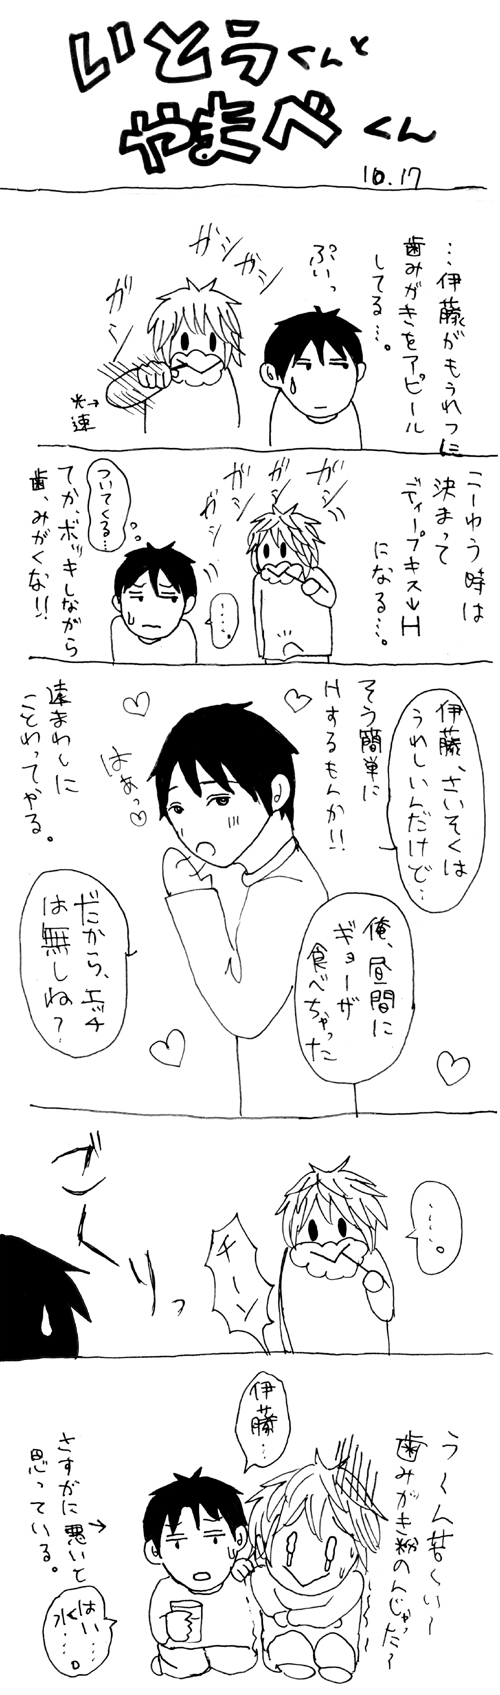 いとうくんと
やまべくん
10.17
…伊藤がもうれつに
歯みがきをアピール
してる…。
ぷいっ
ガシ
ガシ
ガシ
ガシ
光速
こーゆう時は
決まって
ディープキス→H
になる…。
ガシ
ガシ
ガシ
ガシ
……。
ついてくる…
てか、ボッキしながら
歯、みがくな!!
伊藤、さいそくは
うれしいんだけど…
そう簡単に
Hするもんか!!
はぁっ♡
遠まわしに
ことわってやる。
俺、昼間に
ギョーザ
食べちゃった
だから、エッチ
は無しね?
……。
チーン
ごくりっ
う〜ん苦〜い〜
歯みがき粉のんじゃった〜
伊藤…
さすがに悪いと
思っている。
はい…
水…。